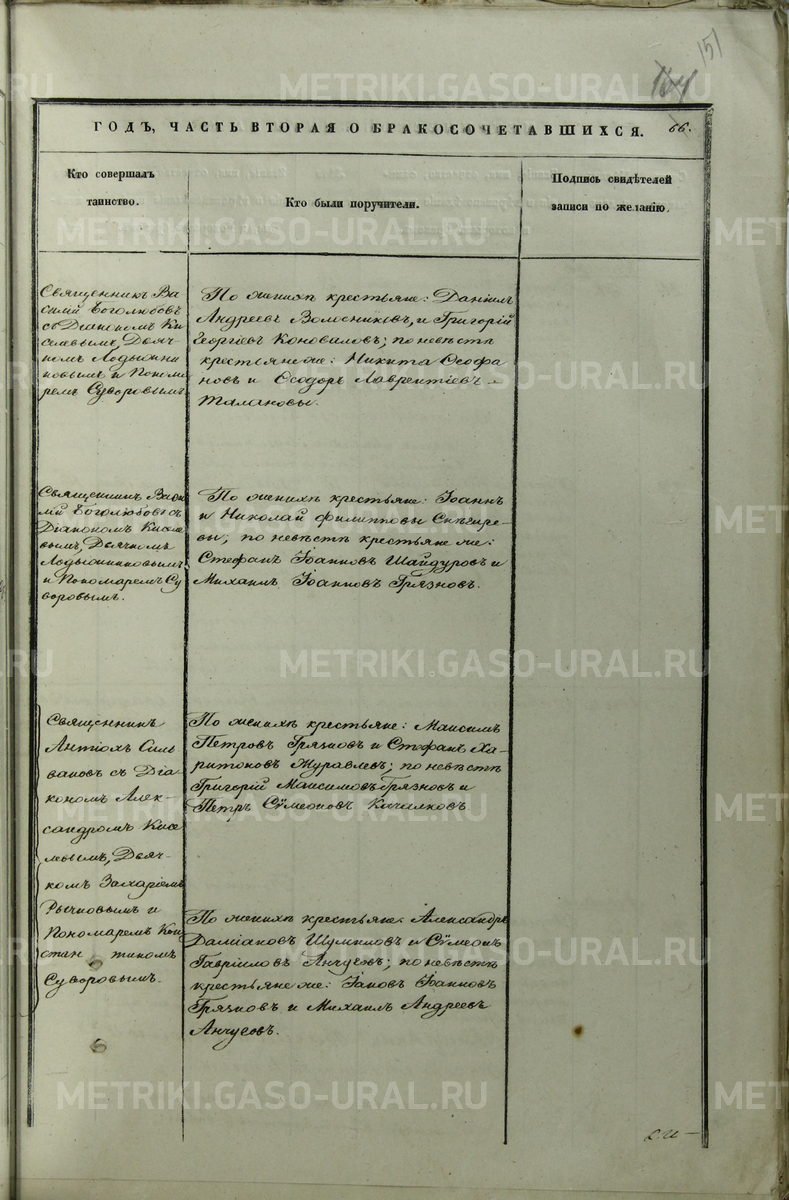 151
164
ГОДЪ, ЧАСТЬ ВТОРАЯ О БРАКОСОЧЕТАВШИХСЯ. 66.
Кто совершалъ
таинство.
Кто были поручители.
Подпись свидѣтелей
записи по желанію.
Священникъ Ва
силій Боголюбовъ
съ Діакономъ Ки
селевымъ, Дьяч-
комъ Лодыжни
ковымъ и Понома
ремъ Суворовымъ
По женихѣ крестьяне: Даніилъ
Андреевъ Волосниковъ, и Григорій
Георгіевъ Коновиловъ; по невѣстѣ
крестьяне же: Никита Ѳеофа
новъ и Ѳеодоръ Лаврентіевъ
Талановы.
Священникъ Васи
лій Боголюбовъ съ
Діакономъ Кисе
вымъ, Дьячкомъ
Лодыжниковымъ
и Пономаремъ Су
воровымъ.
По женихѣ крестьяне: Іоаннъ
и Николай Филипповы Снѣгире-
вы; по невѣстѣ крестьяне же:
Стефанъ Іоанновъ Шайдуровъ и
Михаилъ Іоанновъ Грязновъ.
Священникъ
Антіохъ Силь
вановъ съ Діа
кономъ Алек-
сандромъ Кисе
левымъ, Дьяч-
комъ Захаріемъ
Рычковымъ и
Пономаремъ Кон
стантиномъ
Суворовымъ.
По женихѣ крестьяне: Максимъ
Петровъ Грязновъ и Стефанъ Ха-
ритоновъ Журавлевъ; по невѣстѣ
Григорій Максимовъ Грязновъ и
Петръ Сѵмеоновъ Качалковъ
По женихѣ крестьяне: Александръ
Даміановъ Шумиловъ и Сѵмеонъ
Гавріиловъ Анчуговъ; по невѣстѣ
крестьяне же: Іаковъ Іоанновъ
Грязновъ и Михаилъ Андреевъ
Анчуговъ.
METRIKI.GASO-URAL.RU